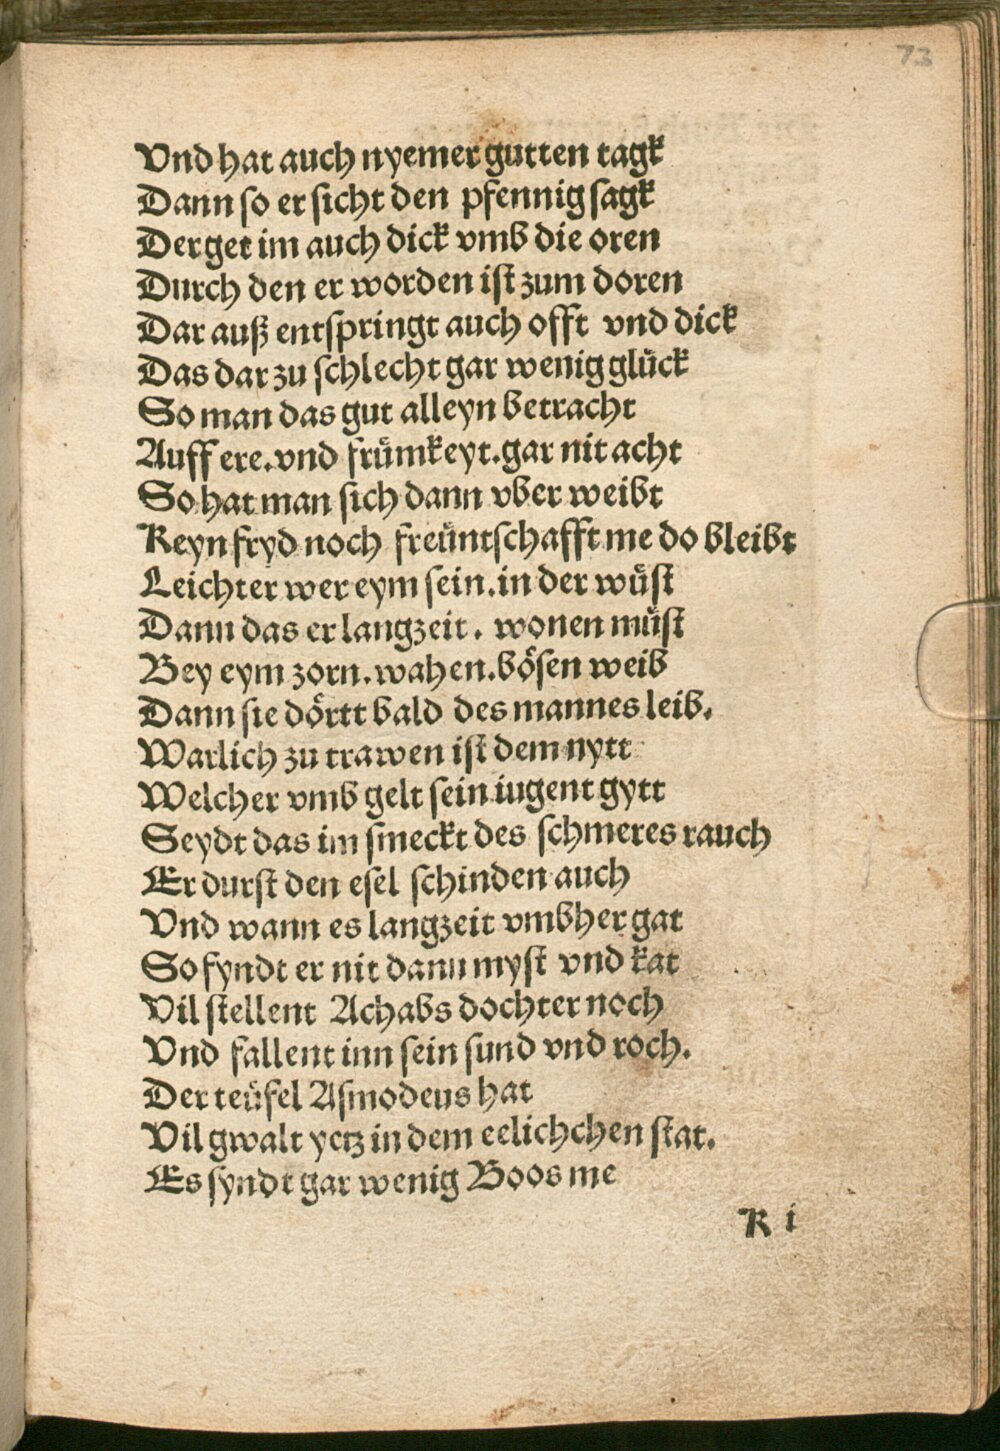 73
Vnd hat auch nyemer gutten tagk
Dann so er sicht den pfennig sagk
Der get im auch dick vmb die oren
Durch den er worden ist zum doren
Dar auß entspringt auch offt vnd dick
Das dar zu schlecht gar wenig glück
So man das gut alleyn betracht
Auff ere.vnd frümkeyt.gar nit acht
So hat man sich dann vber weibt
Keyn fryd noch freüntschafft me do bleibt
Leichter wer eym sein.in der wüst
Dann das er langzeit. wonen müst
Bey eym zorn.wahen.bösen weib
Dann sie dörtt bald des mannes leib.
Warlich zu trawen ist dem nytt
Welcher vmb gelt sein iugent gytt
Seydt das im smeckt des schmeres rauch
Er durst den esel schinden auch
Vnd wann es langzeit vmbher gat
So fyndt er nit dann myst vnd kat
Vil stellent Achabs dochter noch
Vnd fallent inn sein sund vnd roch.
Der teüfel Asmodeus hat
Vil gwalt yetz in dem eelichchen stat.
Es syndt gar wenig Boos me
K i